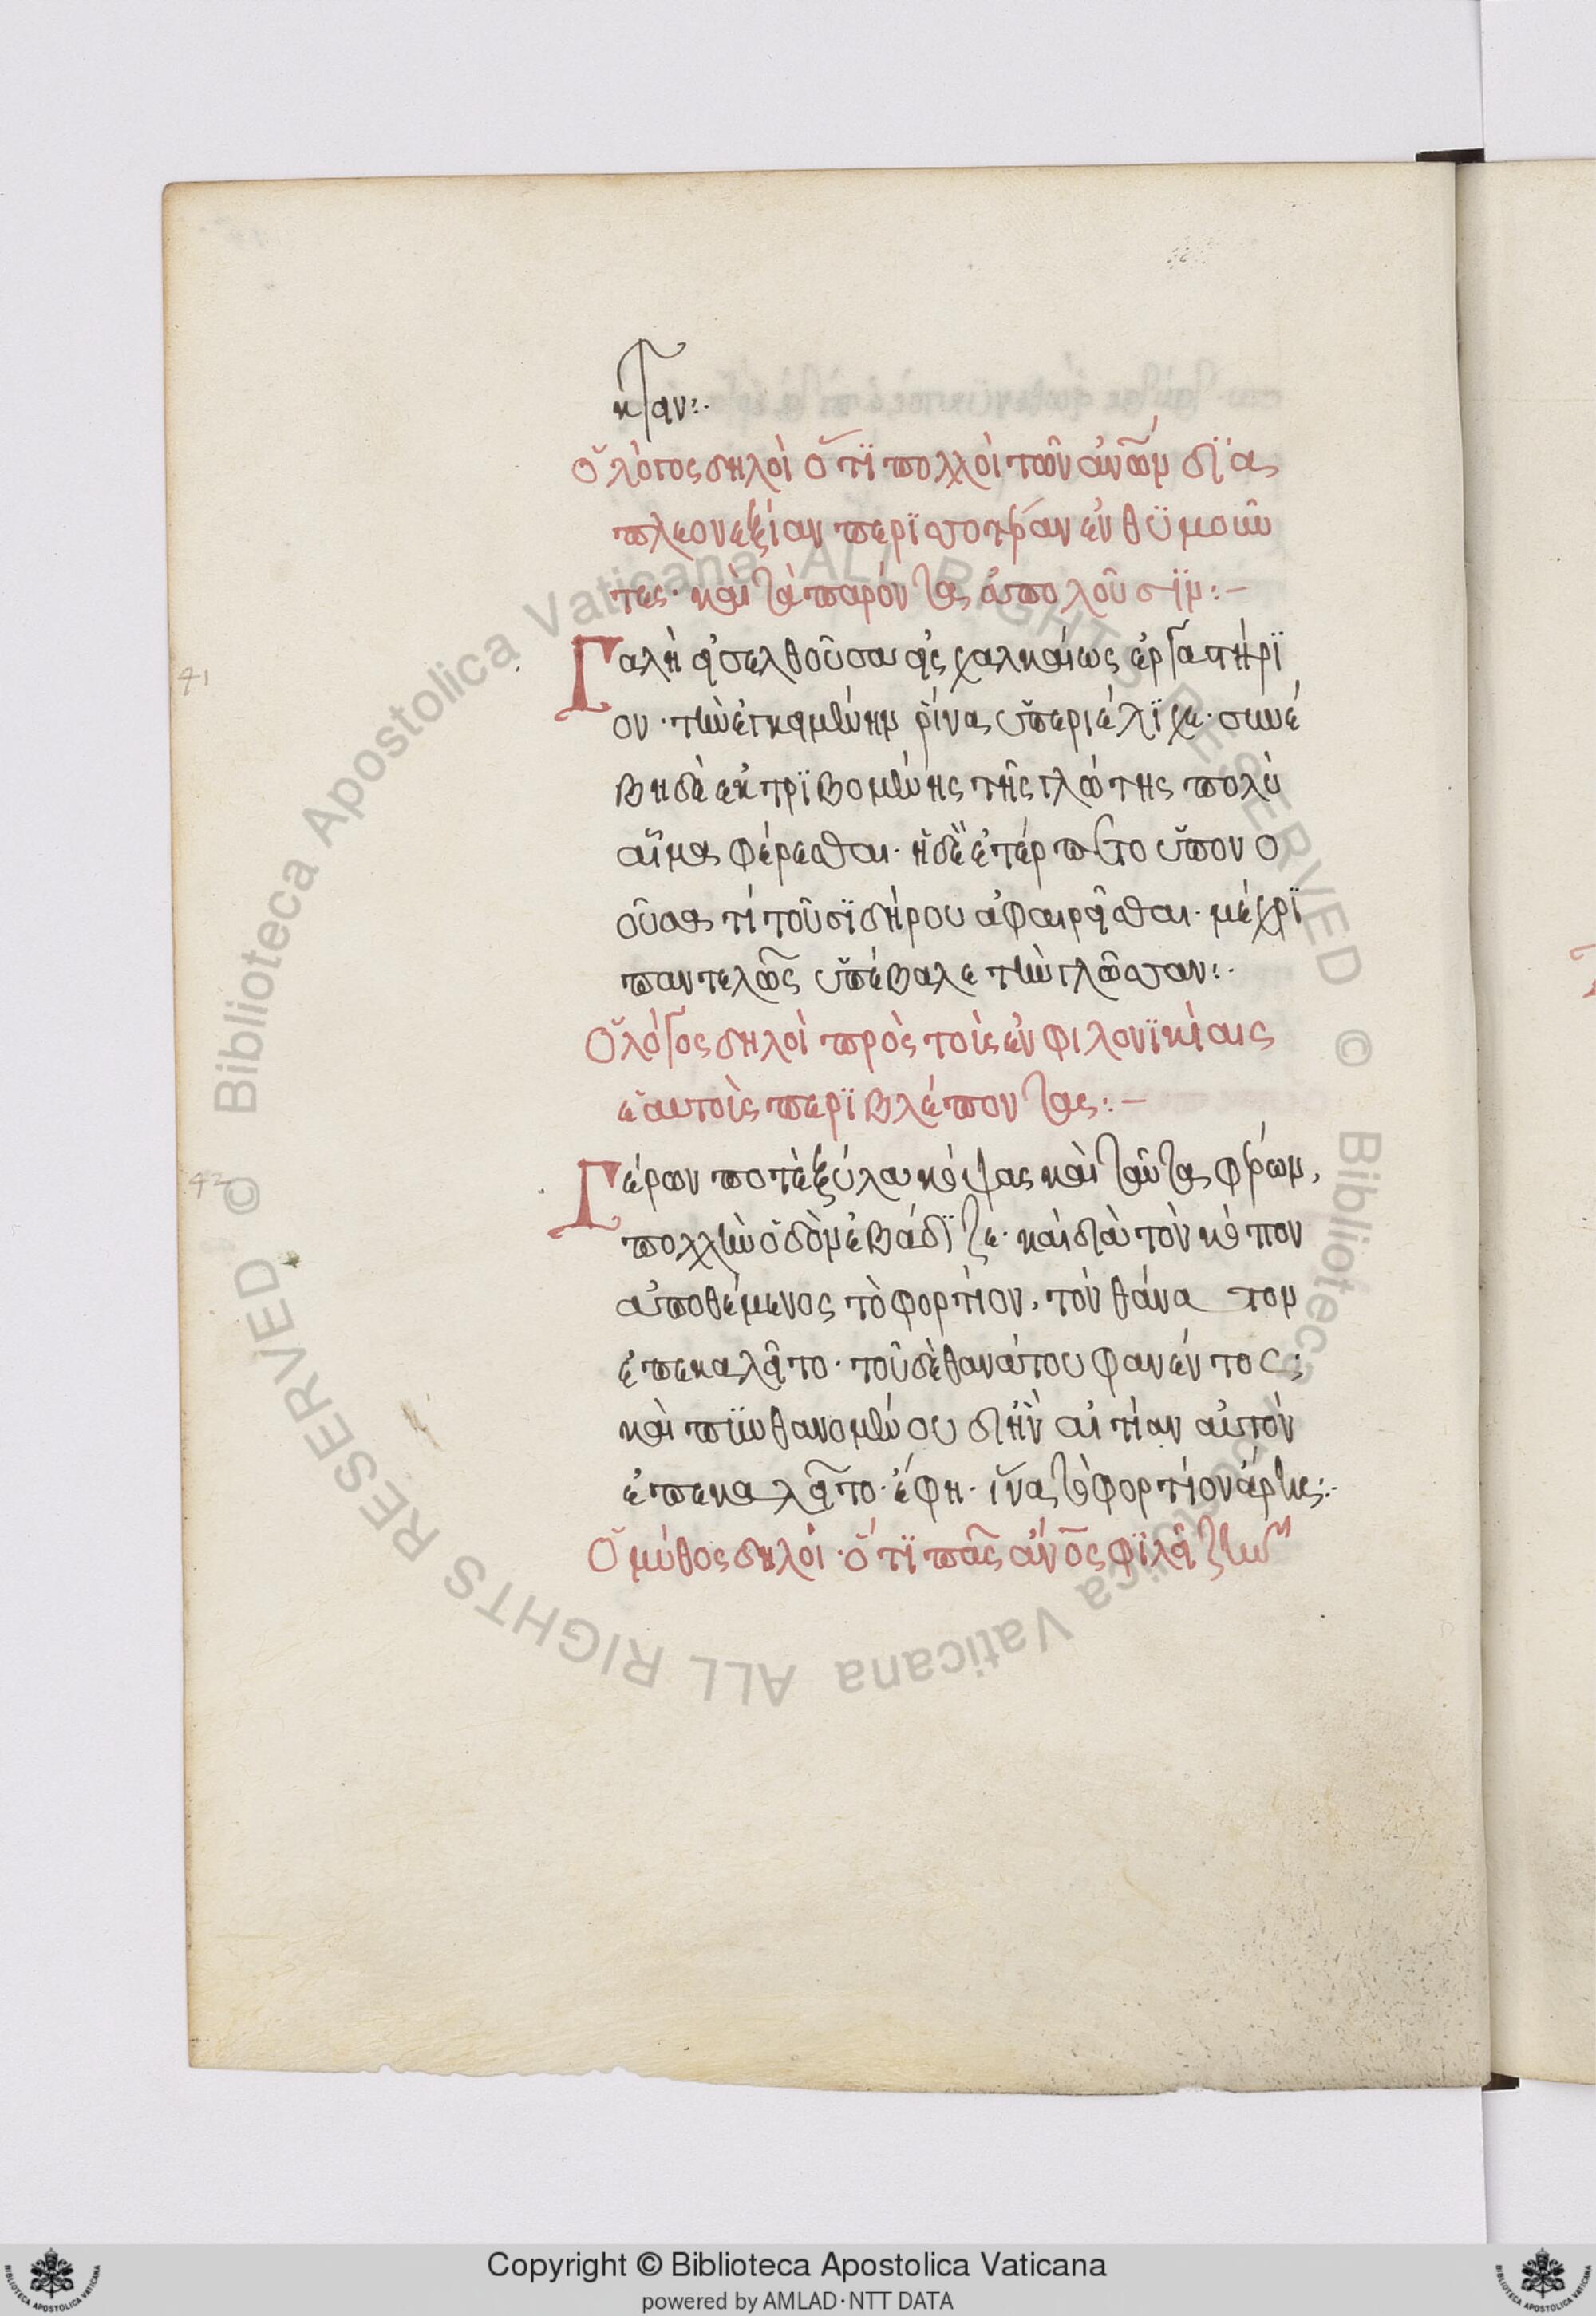 κταν:·
Ὁ λόγος δηλοῖ ὅτι πολλοὶ τῶν ἀνῶν διὰ
πλεονεξίαν περισσοτέραν ἐνθυμουν
τες· καὶ τὰ παρόντα ἀπολοῦσιν:–
Γαλῆ εἰσελθοῦσα εἰς χαλκέως ἐργαστήρι
ον· τὴν ἐκκειμένην ρίνα περιέλιχε· συνέ
βη δὲ ἐκτριβομένης τῆς γλώτης πολὺ
αἷμα φέρεσθαι· ἡ δὲ ἐτέρπετο ὑπονο
οῦσα τί τοῦ σιδήρου ἀφαιρεῖσθαι· μέχρι
παντελῶς ὑπέβαλε τὴν γλῶσσαν:·
Ὁ λόγος δηλοῖ πρὸς τοῖς ἐν φιλονικίαις
ἑαυτοῖς περιβλέποντας:–
Γέρων ποτὲ ξύλα κόψας καὶ ταῦτα φέρων,
πολλὴν ὁδὸν ἐβάδιζε· καὶ διὰ τὸν κόπον
ἀποθέμενος τὸ φορτίον, τὸν θάνατον
ἐπεκαλεῖτο· τοῦ δὲ θανάτου φανέντος·
καὶ πυνθανομένου δι' ἣν αἰτίαν αὐτὸν
ἐπεκαλεῖτο· ἔφη· ἵνα τὸ φορτίον ἄρῃς:·
Ὁ μύθος δηλοῖ· ὅτι πᾶς ἀνος φιλεῖ ζῆν
41
42
© Biblioteca Apostolica Vaticana ALL RIGHTS RESERVED © Biblioteca Apostolica Vaticana ALL RIGHTS RESERVED
Copyright © Biblioteca Apostolica Vaticana
powered by AMLAD·NTT DATA
BIBLIOTECA APOSTOLICA VATICANA
BIBLIOTECA APOSTOLICA VATICANA